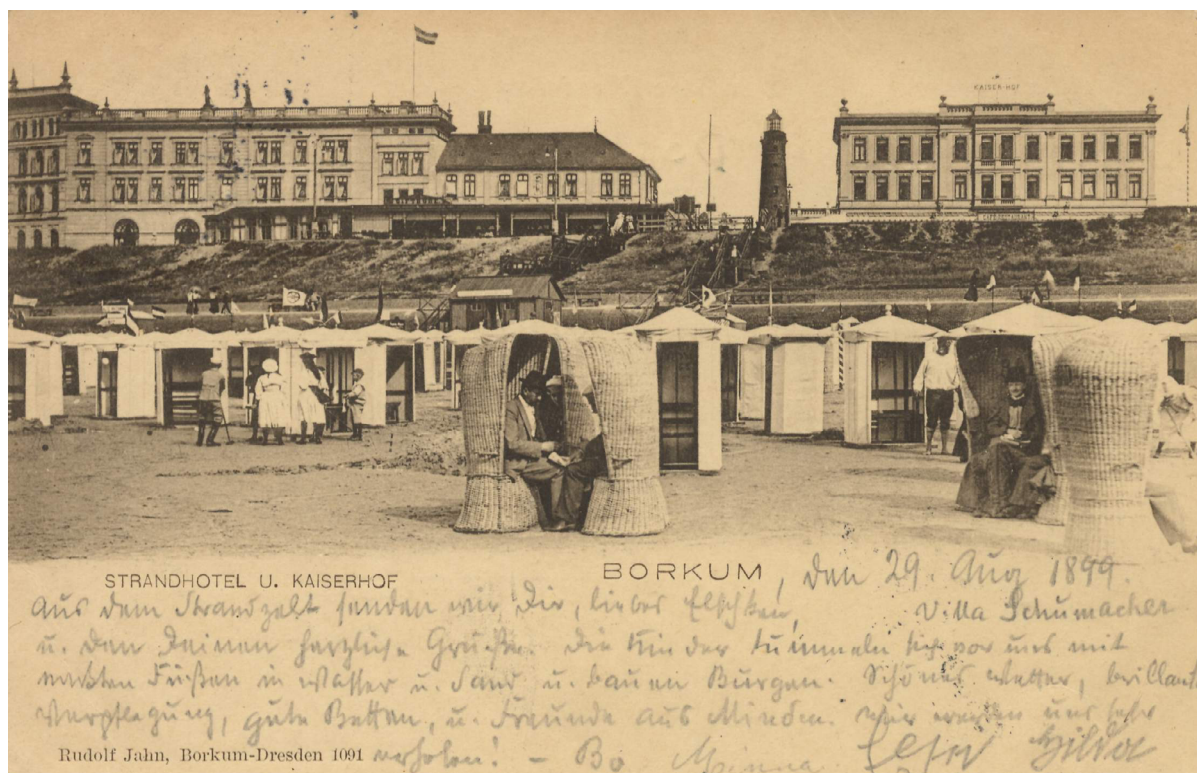 KAISER-HOF
STRANDHOTEL U. KAISERHOF
BORKUM, den 29. Aug 1899.
Villa Schumacher
Aus dem Strandzelt senden wir Dir, liebes Elschken,
u. den Deinen herzliche Grüße. Die Kinder tummeln sich vor uns mit
nackten Füßen in Wasser u. Sand u. bauen Burgen. Schönes Wetter, brillante
Verpflegung, gute Betten, u. Freunde aus Minden. Wir werden uns sehr
erholen! – Minna Hilda
Rudolf Jahn, Borkum-Dresden 1091